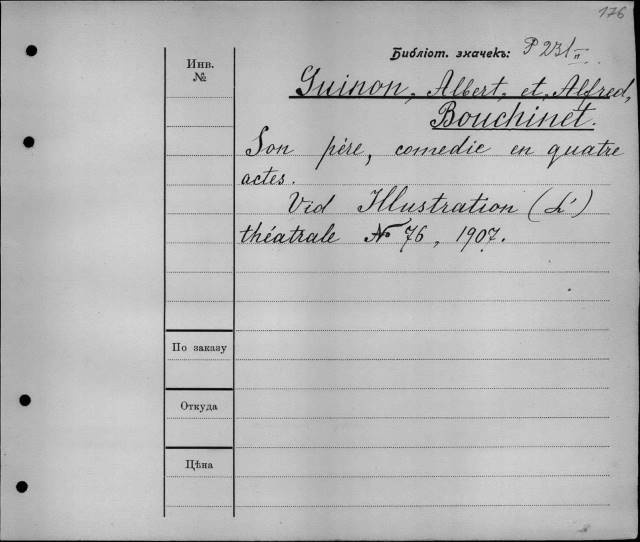 176
Библіот. значекъ: P 231 II
Инв.
№
Guinon, Albert, et, Alfred,
Bouchinet.
Son pére, comedie en quatre
actes.
Vid Illustration (L')
théatrale № 76, 1907.
По заказу
Откуда
Цѣна